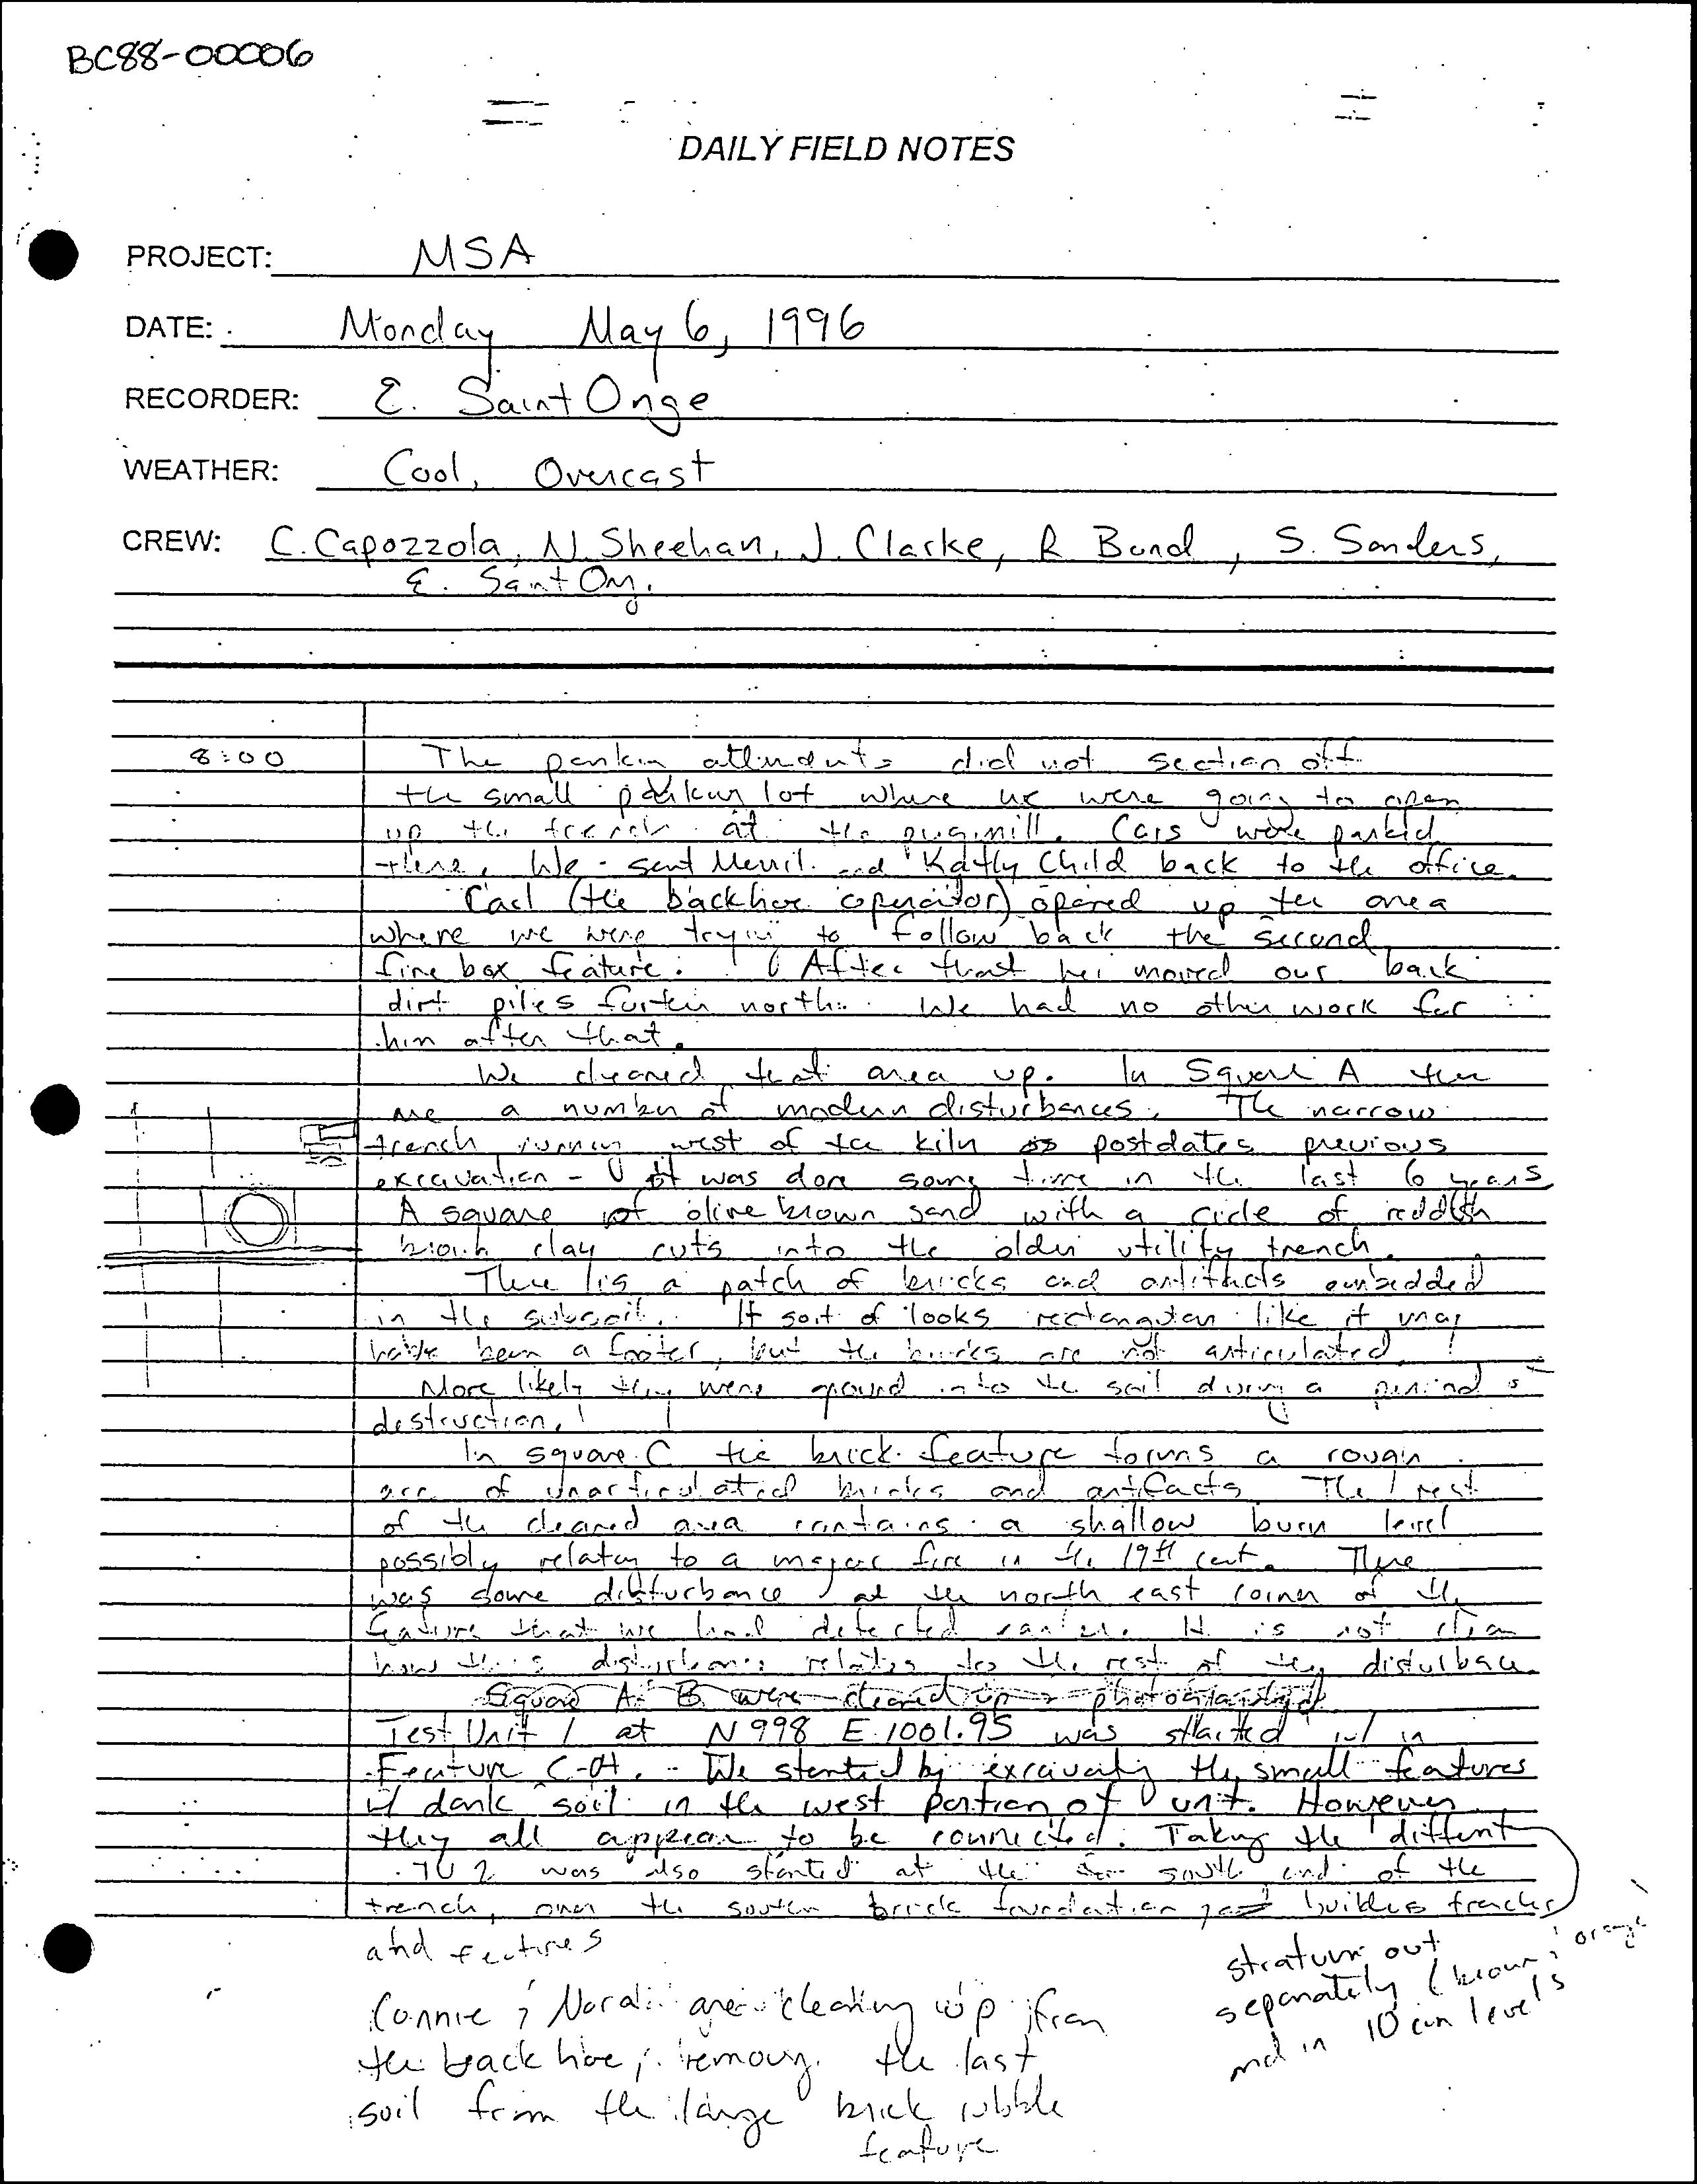 BC88-00006
DAILY FIELD NOTES
PROJECT: MSA
DATE: Monday May 6, 1996
RECORDER: E. Saint Onge
WEATHER: Cool, Overcast
CREW: C. Capozzola, N. Sheehan, J. Clarke, R Bond, S. Sanders,
E. Saint On.
8:00 The parkin attendents did not section off
the small parkin lot where we were going to open
up the trench at the pugmill. Cars were parked
there. We sent Merril and Kathy Child back to the office.
Carl (the backhoe operator) opened up the area
where we were tryin to follow back the second
fire box feature. After that he moved our back
dirt piles further north. We had no other work for
him after that.
We cleaned that area up. In Square A there
are a number of modern disturbances. The narrow
trench runnin west of the kiln postdates previous
excavation - it was done some time in the last 6 years
A square of olive brown sand with a circle of reddish
brown clay cuts into the older utility trench.
There is a patch of bricks and artifacts embedded
in the subsoil. It sort of looks rectangular like it may
have been a footer, but the bricks are not articulated.
More likely they were ground into the soil during a period of
destruction.
In square C the brick feature forms a rough
arc of unarticulated bricks and artifacts. The rest
of the cleared area contains a shallow burn level
possibly relating to a major fire in the 19th cent. There
was some disturbance at the north east corner of the
feature that we had detected earlier. It is not clear
how this disturbance relates to the rest of the disturbance
Square A B were cleaned up + photographed
Test Unit 1 at N998 E 1001.95 was started w/ in
Feature C-01. We started by excavating the small features
of dark soil in the west portion of unit. However
they all appear to be connected. Taking the different
TU 2 was also started at the south end of the
trench, over the southern brick foundation builders trenches
and features
stratum out
separately (brown, orange
and in 10 cm levels
Connie & Nora are cleaning up from
the back hoe, removing the last
soil from the large brick rubble
feature